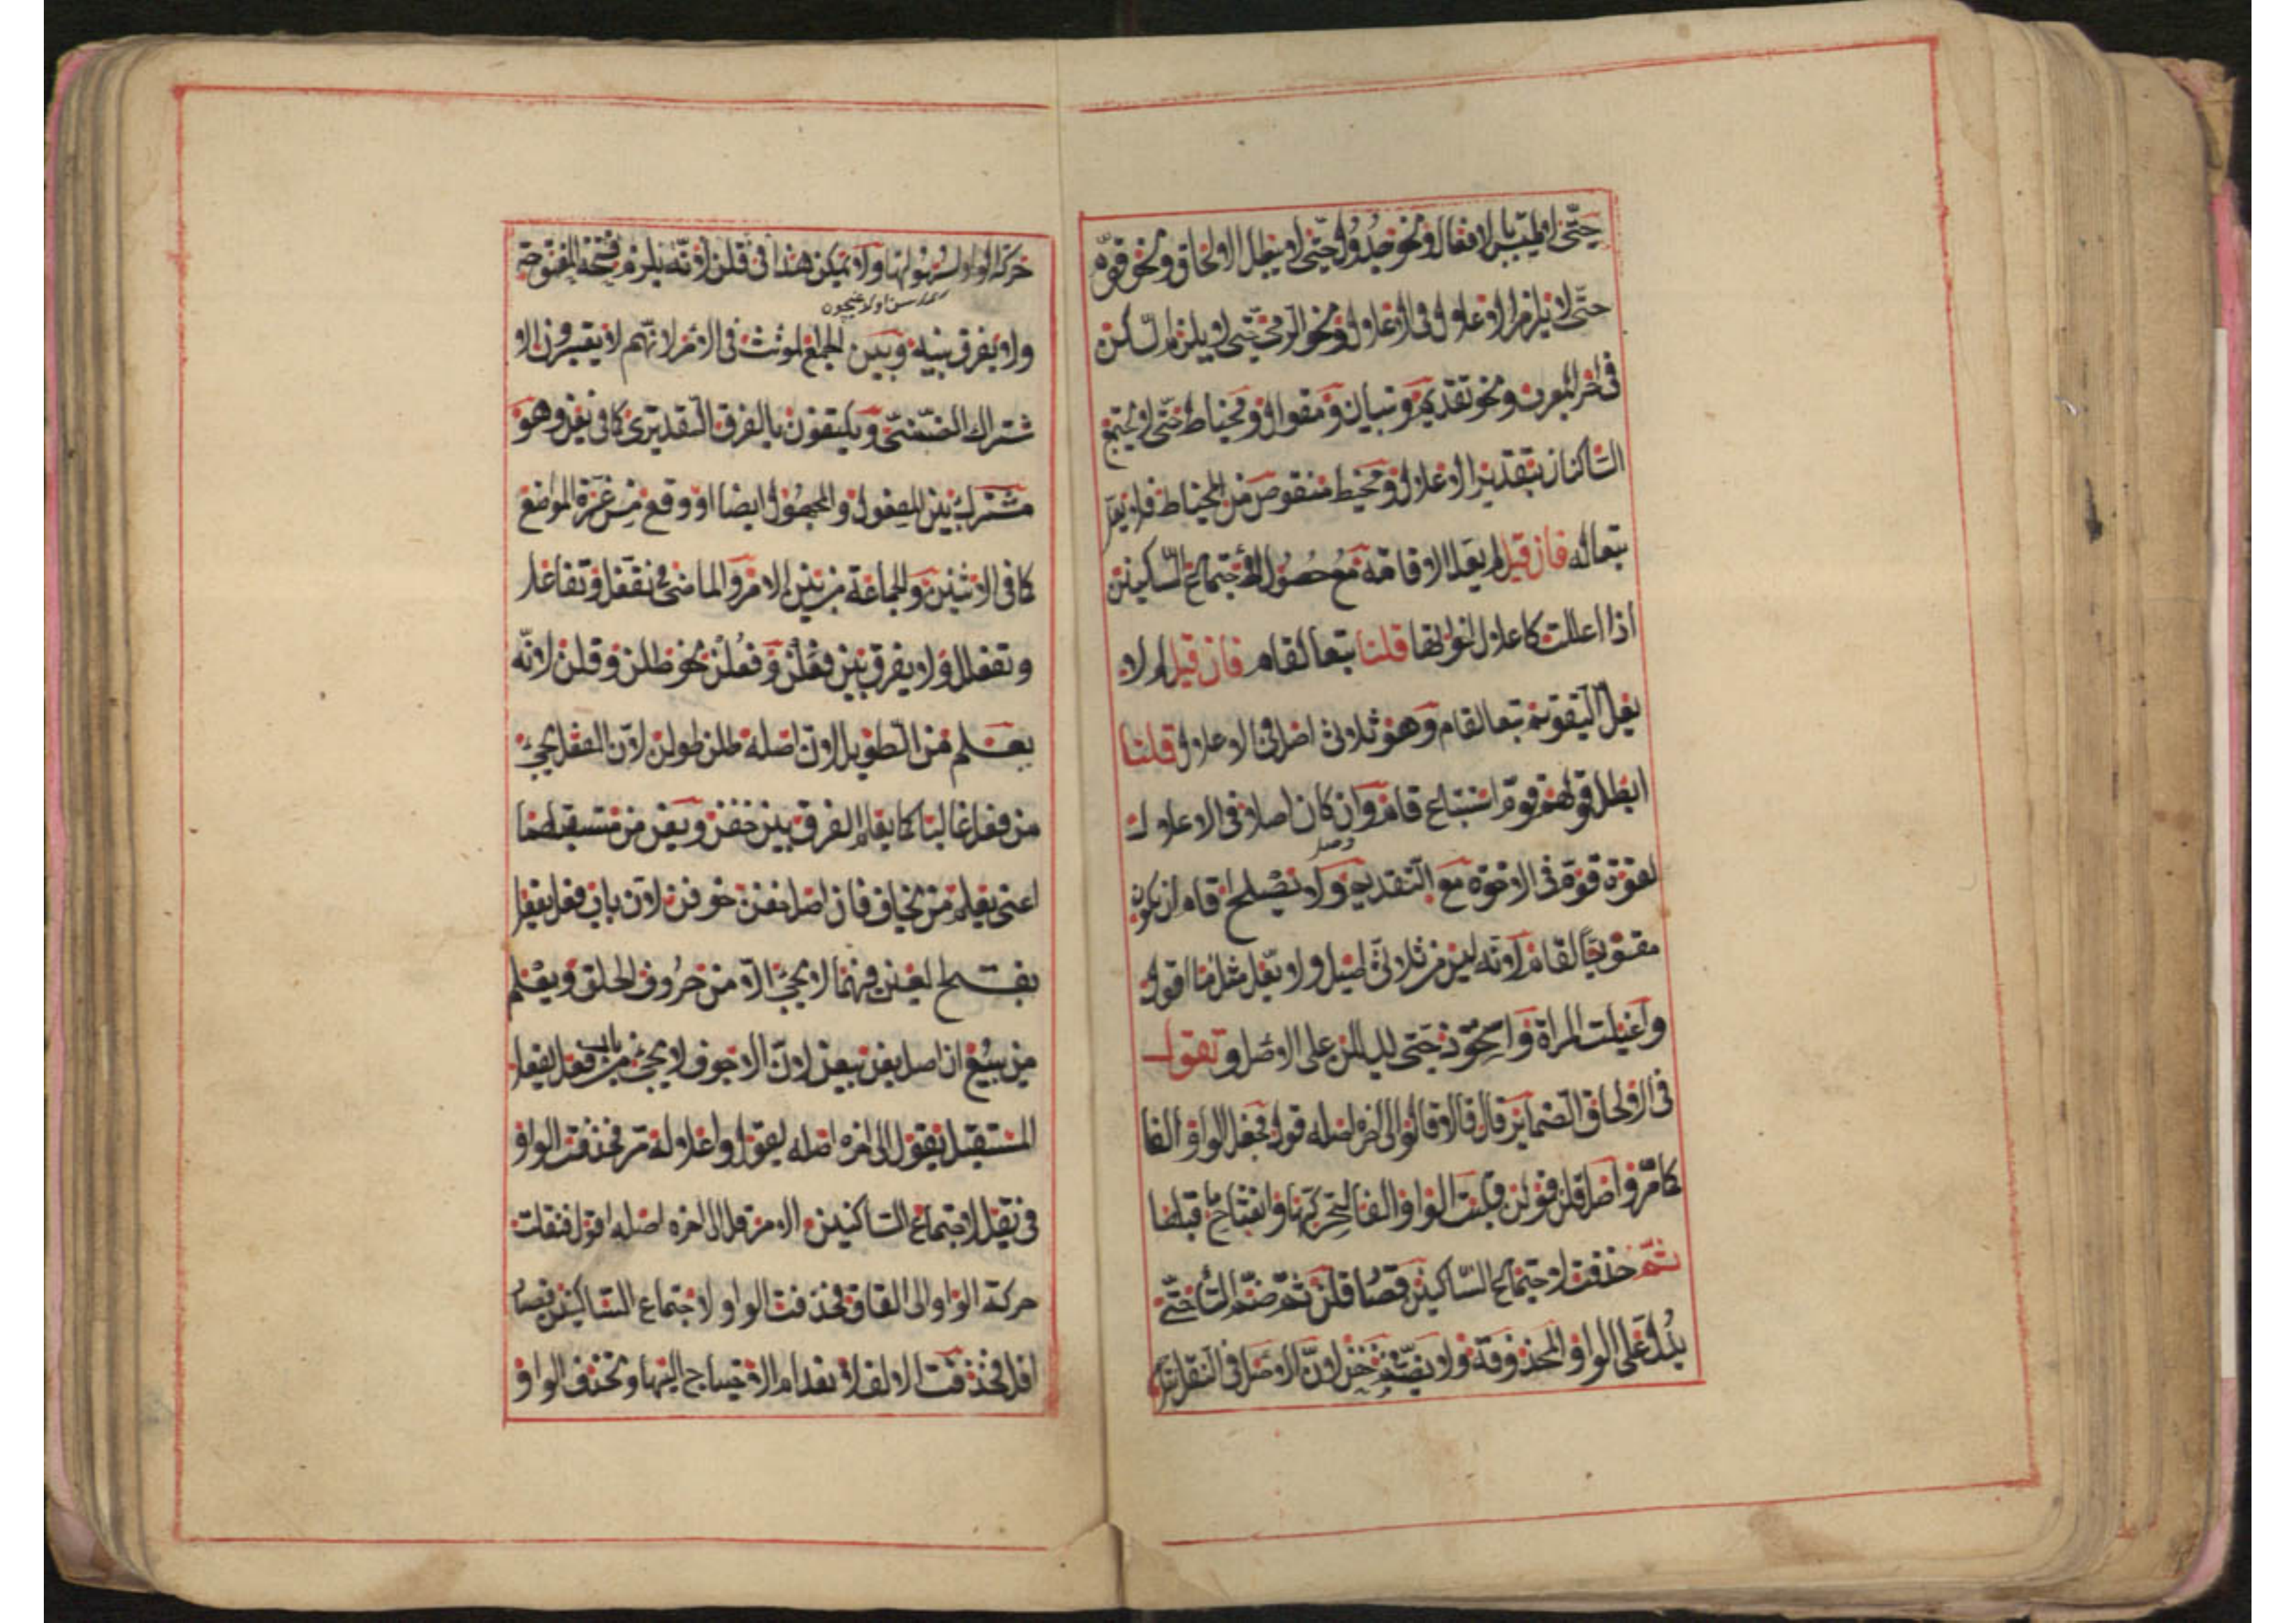 حتى لا يلتبس بالافعال ونحو جدول حتى لا يبطل الالحاق ونحو قوم
حتى لا يلزم الاعلال فى الاعلال ونحو الرمى حتى لا يلزم الساكن
فى اخر المعرب ونحو تقديم وتبيان ومقوال ومخياط حتى لا يجتمع
الساكنان بتقدير الاعلال ومخيط منقوص من المخياط فلا يعل
تبعا له فان قيل لم يعل الاقامة مع حصول الاجتماع الساكنين
اذا اعللت كاعلال اخواتها قلنا تبعا لقام فان قيل لم لا
يعل التقويم تبعا لقام وهو ثلاثى اصل فى الاعلال قلنا
ابطل قوله قوم استتباع قام وان كان اصلا فى الاعلال
لقوة قوم فى الاخوة مع التقديم ولا يصلح قام ان يكون
مقتويجا لقام لانه ليس من ثلاثى اصيل ولا يعل مثل ما اقول
واغيلت المراة واستحوذ حتى يدللن على الاصل وتقول
فى الالحاق الضمائر قال قالا قالوا الى اخره اصله قول فجعل الواو الفا
كما مر واصل قلن قولن قلبت الواو الفا لتحركها وانفتاح ما قبلها
ثم حذفت لاجتماع الساكنين فصار قلن ثم ضم القاف حتى
يدل على الواو المحذوفة ولا يضم فى خفن لان الاصل فى النقل نقل
حركة الواو لسهولتها ولا يمكن هذا فى قلن لانه يلزم فتحة المفتوحة
ولا يفرق بينه وبين الجمع المؤنث فى الامر لانهم لا يعتبرون الا
شتراك الضمنى ويكتفون بالفرق التقديرى كما فى بعن وهو
مشترك بين المعلوم والمجهول ايضا او وقع من غرة الواضع
كما فى الاثنين والجماعة من بين الامر والماضى فى تفعل وتفاعل
وتفعلل ولا يفرق بين فعلن وفعلن نحو طلن وقلن لانه
يعلم من الطويل لان اصله طلن طولن لان الفعل يجئ
من فعل غالبا كما يعلم الفرق بين خفن وبعن من مستقبلهما
اعنى يعلم من يخاف فان اصل خفن خوفن لان باب فعل يفعل
بفتح العين فيهما لا يجئ الا من حروف الحلق ويعلم
من يبيع ان اصل بعن بيعن لان الاجوف لا يجئ من باب فعل يفعل
المستقبل يقول الى اخره اصله يقول واعلاله مر فحذفت الواو
فى يقلن لاجتماع الساكنين الامر قل الى اخره اصله اقول فنقلت
حركة الواو الى القاف فحذفت الواو لاجتماع الساكنين فصار
اقل فحذفت الالف لانعدام الاحتياج اليها وتحذف الواو